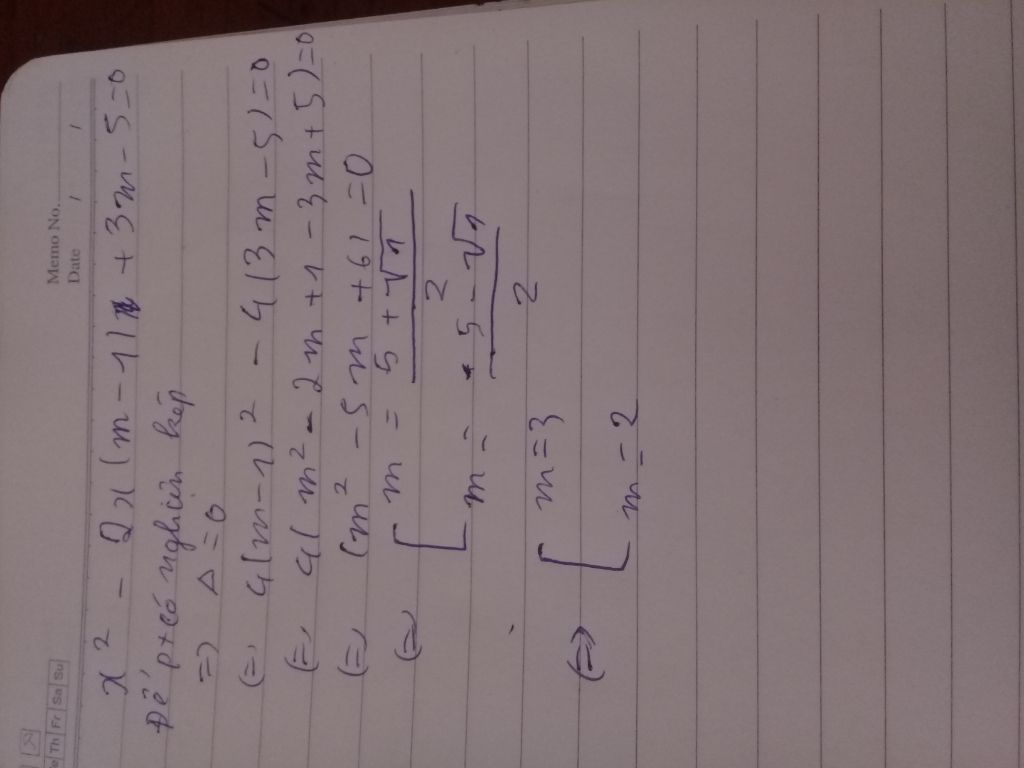 Memo No.
Date / /
Th Fr Sa Su
x² - 2x(m-1) + 3m-5=0
Để pt có nghiệm kép
=> Δ = 0
(=) 4(m-1)² - 4(3m-5)=0
(=) 4(m² - 2m+1 - 3m+5)=0
(=) (m² - 5m +6)=0
(=) [ m = 5 + √1 / 2
m = 5 - √1 / 2
(=) [ m=3
m=2